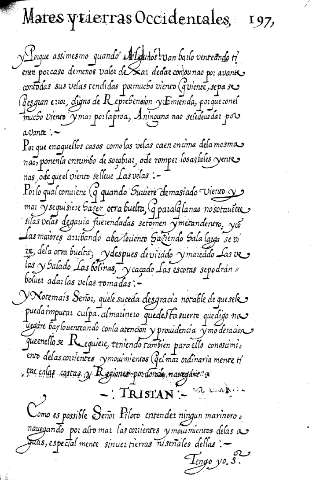 Mares y tierras Occidentales, 197,
y Porque assimesmo quando Algudos van bailo venteando ti
enen por caso demenos valor de mar dadas con
contodas sus velas tendidas por mucho viento q viente, sepa se
es gran error, digno de Reprehension y Emienda, porque con el
mucho viento y mar por la proa, A ninguna nao se le puede dar por
avante :-
Por que en aquellos casos como las velas caen encima de la mesma
nao, ponenla en tumbo de soçobrar, o de romper los masteles y ente
nas, o de que el viento se lleve Las velas :-
Por lo qual conviene q quando huviere demasiado Viento y
mar y se quisiere hazer otra buelta, q para q la nao no sotavente
si las velas de gavia fueren dadas se tomen y metan dentro, y co
Las maiores arribando abaloviento haziendo Sala larga se vi
re, de la otra buelta, y despues de virado y mareado Las ve
las y halado Las bolinas, y caçado Las escotas se podran
bolver a dar los velas tomadas :-
y Note mais Señor, que le suceda desgracia notable de que se le
pueda imputar culpa, al marinero que desta suerte que digo na
vegare barloventeando con la atencion y providencia y moderacion
que en ello se Requiere, teniendo tambien para ello conoscimi
ento de las corrientes y movimientos q el mar ordinaria mente ti
ene en las costas y Regiones por donde navegare
- TRISTAN :-
Como es possible Señor Piloto entender ningun marinero
navegando por alto mar las corrientes y movimientos de las a
guas, especial mente sin ver tierras ni señales dellas :-
Tengo yo, S.